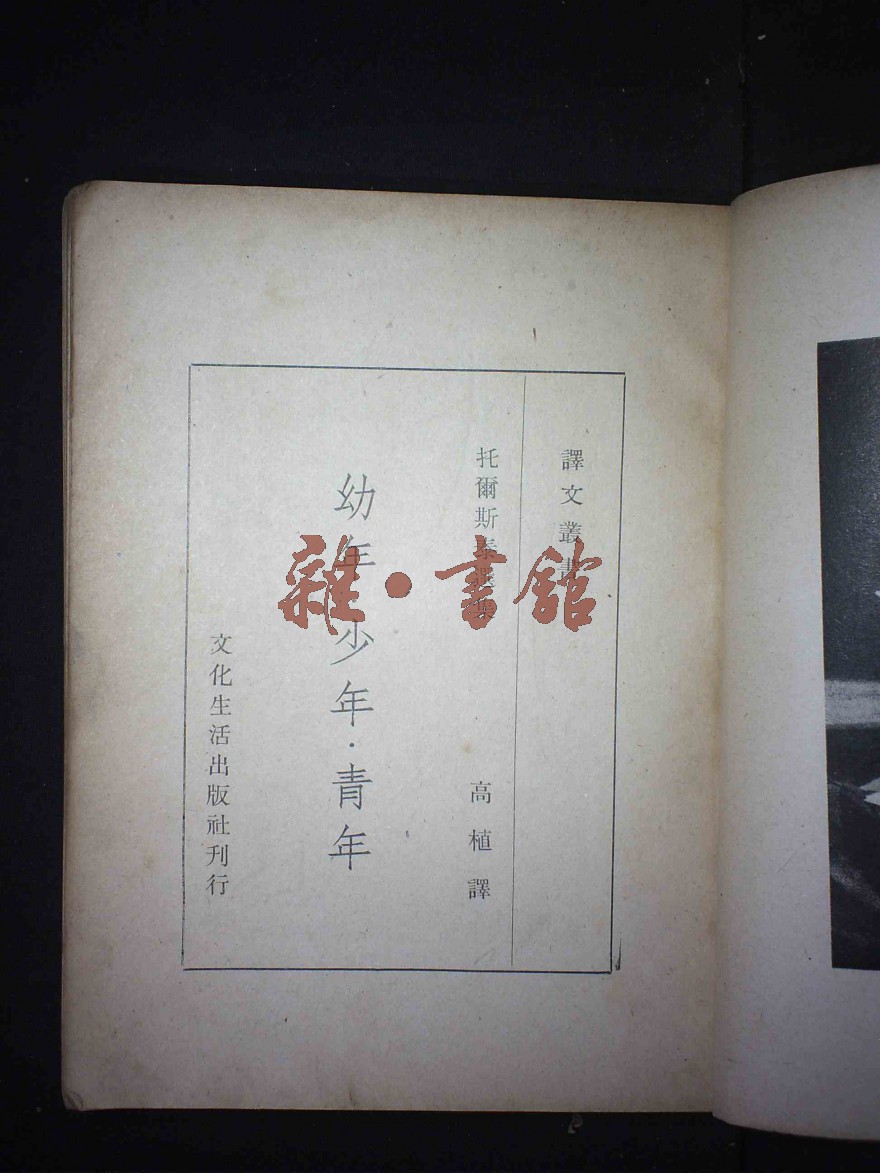 譯文叢書
托爾斯泰選集
高植譯
幼年·少年·青年
文化生活出版社刊行
雜·書館